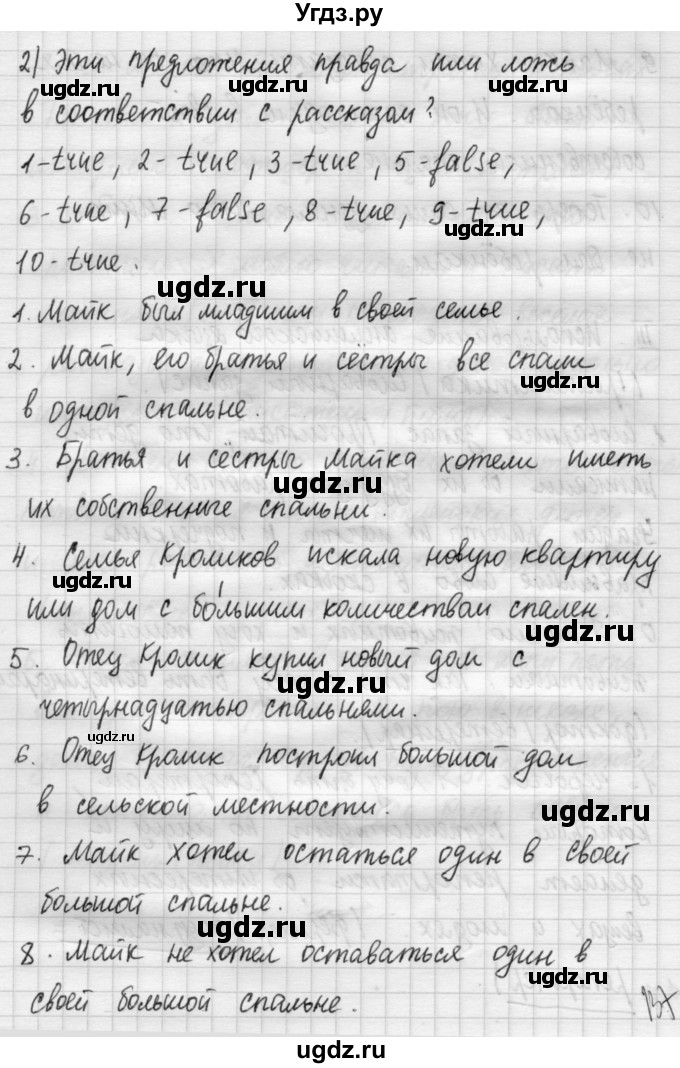 Угдз.ру
2) Эти предложения правда или ложь
в соответствии с рассказом?
1-true, 2- true, 3 -true, 5-false,
6-true, 7 -false, 8-true, 9-true,
10-true.
1. Майк был младшим в своей семье.
2. Майк, его братья и сёстры все спали
в одной спальне.
3. Братья и сёстры Майка хотели иметь
их собственные спальни.
4. Семья Кроликов искала новую квартиру
или дом с бо́льшим количеством спален.
5. Отец Кролик купил новый дом с
четырнадцатью спальнями.
6. Отец Кролик построил большой дом
в сельской местности.
7. Майк хотел остаться один в своей
большой спальне.
8. Майк не хотел оставаться один в
своей большой спальне.
137
ugdz.ru